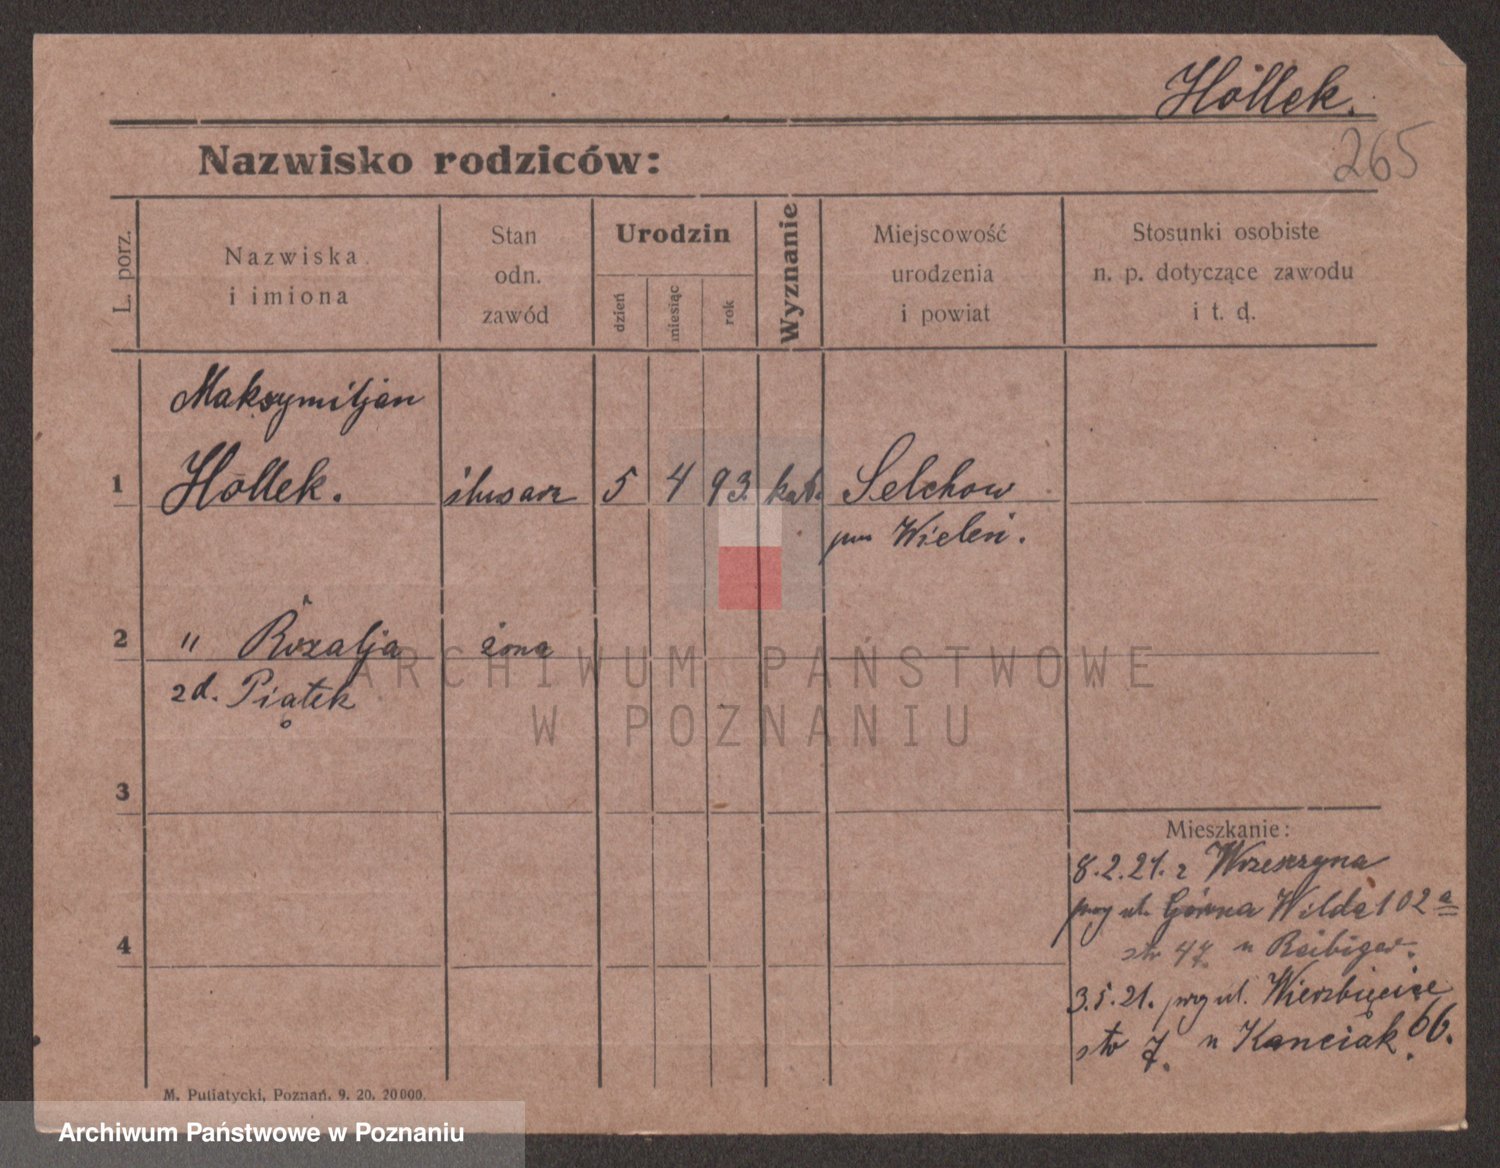 Höllek.
265
Nazwisko rodziców:
L. porz.
Nazwiska
i imiona
Stan
odn.
zawód
Urodzin
dzień
miesiąc
rok
Wyznanie
Miejscowość
urodzenia
i powiat
Stosunki osobiste
n. p. dotyczące zawodu
i t. d.
Maksymiljan
1 Höllek. ślusarz 5 4 93. kat. Selchow
pow Wieleń.
2 " Rozalja żona
zd. Piątek
3
Mieszkanie:
8.2.21. z Wrzeszyna
przy ul. Górna Wilda 102a
str 47. u
4
3.5.21. przy ul. Wierzbięcice
66.
str 7. u Kanciak.
M. Putiatycki, Poznań. 9. 20. 20000.
ARCHIWUM PAŃSTWOWE
W POZNANIU
Archiwum Państwowe w Poznaniu